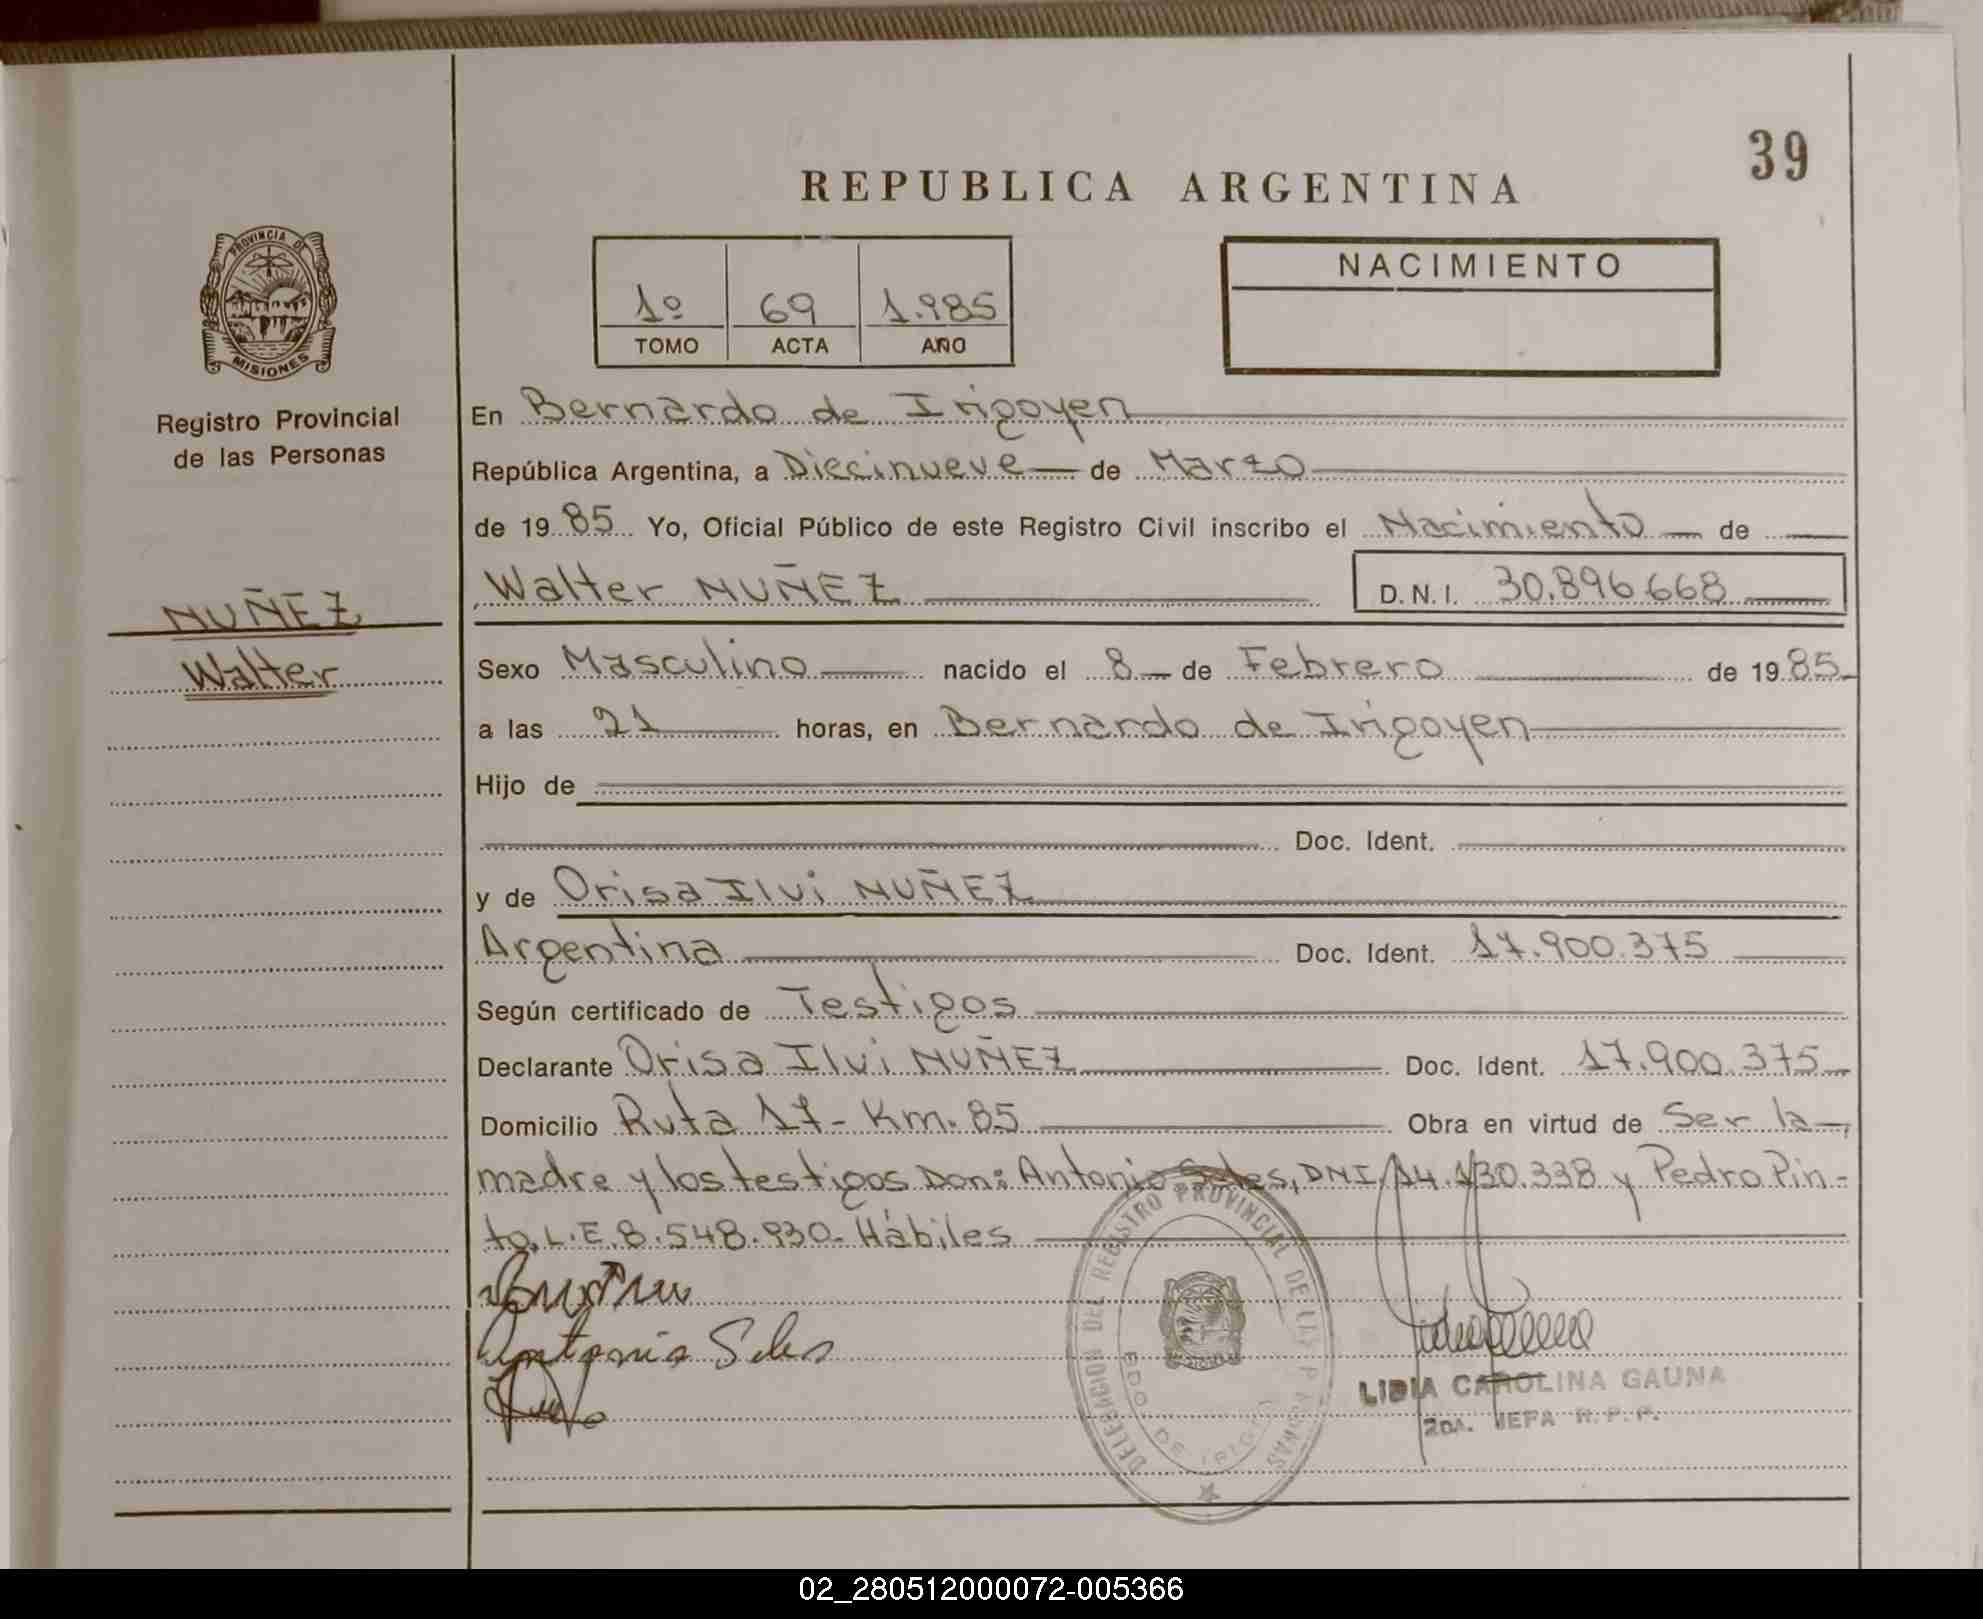 39
REPUBLICA ARGENTINA
PROVINCIA DE
MISIONES
Registro Provincial
de las Personas
NUÑEZ
Walter
1º 69 1.985
TOMO ACTA AÑO
NACIMIENTO
En Bernardo de Irigoyen
República Argentina, a Diecinueve de Marzo
de 1985 Yo, Oficial Público de este Registro Civil inscribo el Nacimiento de
Walter NUÑEZ D.N.I. 30.896.668
Sexo Masculino nacido el 8 de Febrero de 1985
a las 21 horas, en Bernardo de Irigoyen
Hijo de
Doc. Ident.
y de Orisa Ilvi NUÑEZ
Argentina Doc. Ident. 17.900.375
Según certificado de Testigos
Declarante Orisa Ilvi NUÑEZ Doc. Ident. 17.900.375
Domicilio Ruta 17- Km. 85 Obra en virtud de Ser la
madre y los testigos Don: Antonio Sales, DNI. 14.130.338 y Pedro Pin-
to, L.E. 8.548.930- Hábiles
DELEGACION DEL REGISTRO PROVINCIAL DE LAS PERSONAS
BDO. DE IRIGOYEN
LIDIA CAROLINA GAUNA
2DA. JEFA R.P.P.
02_280512000072-005366